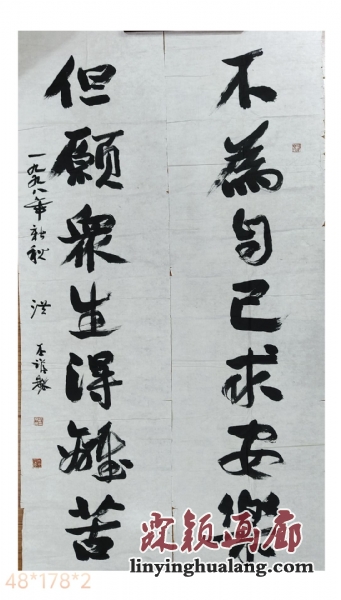 不為自己求安樂
但願眾生得離苦
一九九八年新秋 洪丕謨
霖颖画廊
linyinghualang.com
48*178*2